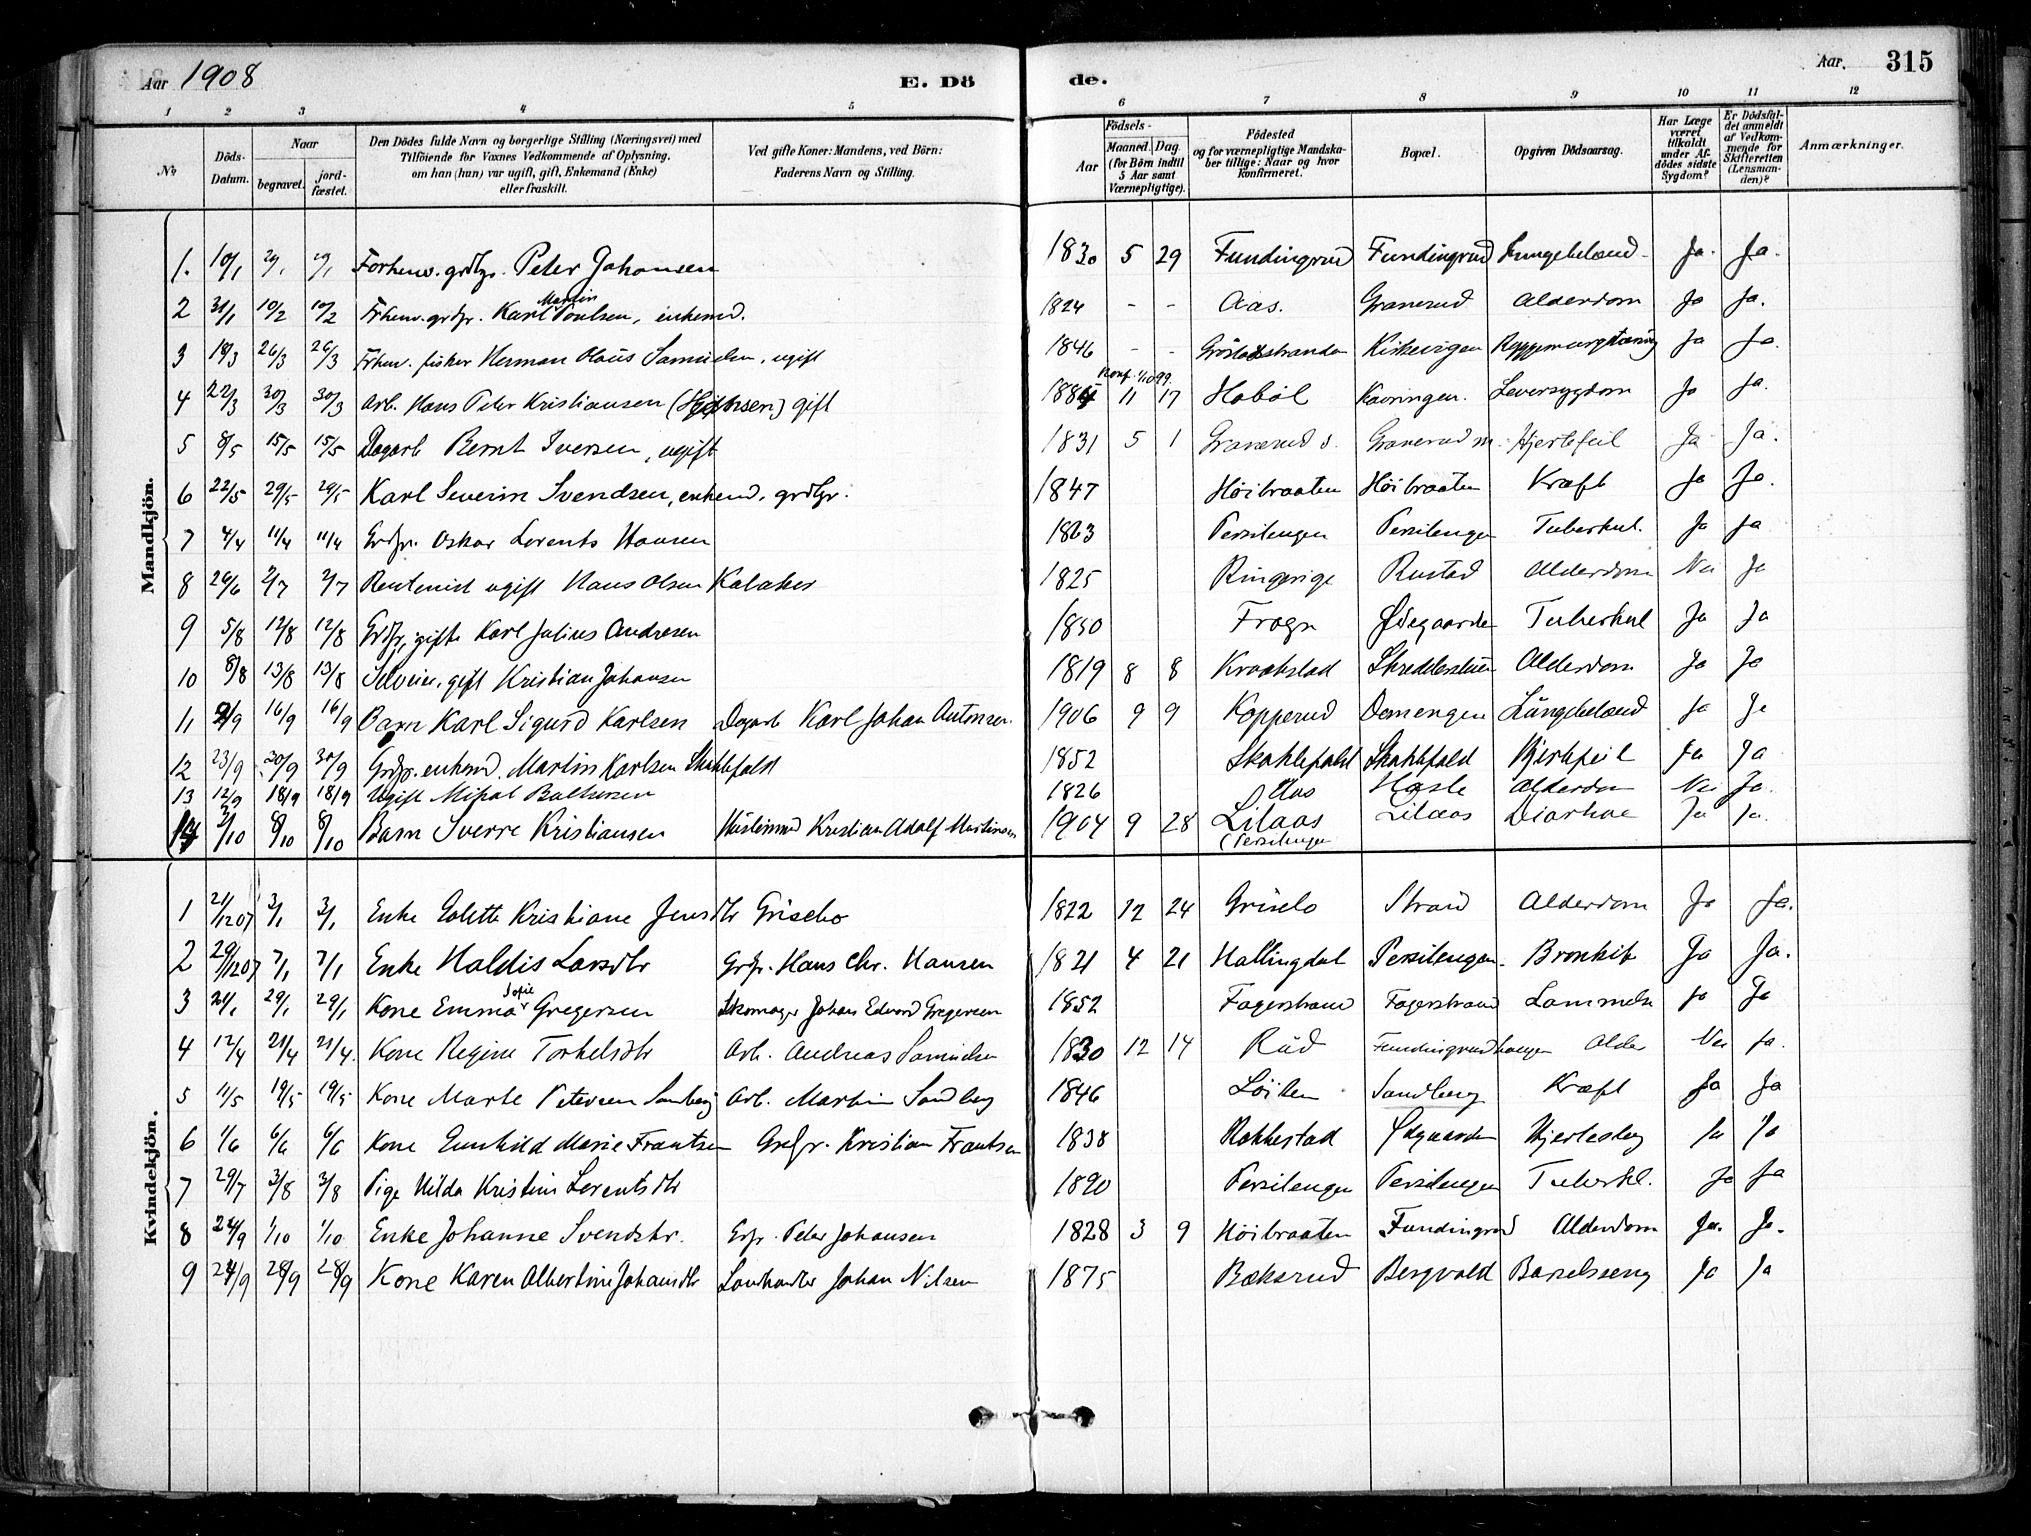 Aar 1908 E. Dö de. Aar. 315
1 2 3 4 5 6 7 8 9 10 11 12
No. Döds-Datum. Naar begravet. jord-fæstet. Den Dödes fulde Navn og borgerlige Stilling (Næringsvei) med Tilföiende for Voxnes Vedkommende af Oplysning, om han (hun) var ugift, gift, Enkemand (Enke) eller fraskilt. Ved gifte Koner: Mandens, ved Börn: Faderens Navn og Stilling. Födsels- Aar Maaned. Dag. (for Börn indtil 5 Aar samt Værnepligtige). Födested og for værnepligtige Mandskaber tillige: Naar og hvor Konfirmeret. Bopæl. Opgiven Dödsaarsag. Har Læge været tilkaldt under Afdödes sidste Sygdom? Er Dödsfaldet anmeldt af Vedkommende for Skifteretten (Lensmanden)? Anmærkninger.
Mandkjön.
1. 10/1 Forhenv. grdbr. Peter Johansen 1830 5 29 Fundingrud Fundingrud Lungebetænd. Ja. Ja.
2 31/1 10/2 10/2 Frhenv. grdbr. Karl Martin Poulsen, enkemd. 1824 - - Aas. Granerud Alderdom Ja Ja.
3 18/3 26/3 26/3 Frhenv. fisker Herman Olaus Samuelsen, ugift 1846 - - Griselostranda Kirkevigen Ryggemargstæring Ja Ja.
4 22/3 30/3 30/3 Arb. Hans Peter Kristiansen gift Konf. 1/10 99. 1884 11 17 Hobøl Kavringen. Leversygdom Ja Ja.
5 8/5 15/5 15/5 Dagarb Bernt Iversen, ugift 1831 5 1 Granerud s. Granerud m. Hjertefeil Ja Ja.
6 22/5 29/5 29/5 Karl Severin Svendsen, enkemd. grdbr. 1847 Høibraaten Høibraaten Kræft Ja Ja.
7 4/4 11/4 11/4 Grdbr. Oskar Lorents Hansen 1863 Persilengen Persilengen Tuberkul. Ja Ja
8 26/6 2/7 2/7 Rentenist ugift Hans Olsen Kalaker 1825 Ringerige Rustad Alderdom Nei Ja
9 5/8 12/8 12/8 Grdbr, gifte Karl Julius Andresen 1850 Frogn Ødegaarden Tuberkul Ja Ja
10 8/8 13/8 13/8 Selveier, gift Kristian Johansen 1819 8 8 Kraakstad Skredderstuen Alderdom Ja Ja
11 9/9 16/9 16/9 Barn Karl Sigurd Karlsen Dagarb Karl Johan Antonsen. 1906 9 9 Kopperud Damengen Lungebetænd Ja Ja
12 23/9 30/9 30/9 Grdbr. enkemd. Martin Karlsen Skohlefaldt 1852 Skohlefaldt Skohlefald Hjertefeil Ja Ja
13 12/9 18/9 18/9 Ugift Mikal Baltersen 1826 Aas Hasle Alderdom Nei Ja.
14 2/10 8/10 8/10 Barn Sverre Kristiansen Kristian Adolf Martinsen 1904 9 28 Lilaas (Persilengen Lilaas Diarhoe Ja Ja.
Kvindekjön.
1 21/12 07 3/1 3/1 Enke Eolette Kristiane Jensdtr Griselo 1822 12 24 Griselo Strand Alderdom Ja Ja.
2 29/12 07 7/1 7/1 Enke Haldis Larsdtr Grdbr. Hans Chr. Hansen 1821 4 21 Hallingdal Persilengen. Bronkit Ja Ja.
3 21/1 29/1 29/1 Kone Emma Sofie Gregersen Skomager Johan Edvard Gregersen 1852 Fagerstrand Fagerstrand Lammelse Ja Ja
4 12/4 21/4 21/4. Kone Regine Torkelsdtr Arb. Andreas Samuelsen 1830 12 14 Rud Fundingrudhaugen Alder Nei Ja.
5 11/5 19/5 19/5 Kone Marte Petersen Sandberg Arb. Martin Sandberg 1846 Løiten Sandberg Kræft Ja Ja
6 1/6 6/6 6/6 Kone Gunhild Marie Frantsen Grdbr. Kristian Frantsen 1838 Rakkestad Ødgaarden Hjertesyg Ja Ja
7 29/7 3/8 3/8 Pige Hilda Kristine Lorentsdtr 1890 Persilengen Persilengen Tuberkl. Ja Ja
8 24/9 1/10 1/10 Enke Johanne Svendsdtr. Grdbr. Peter Johansen 1828 3 9 Høibraaten Fundingrud Alderdom Ja. Ja.
9 24/9 28/9 28/9 Kone Karen Albertine Johansdtr Landhandler Johan Nilsen 1875 Bækerud Bergvold Barselseng Ja Ja